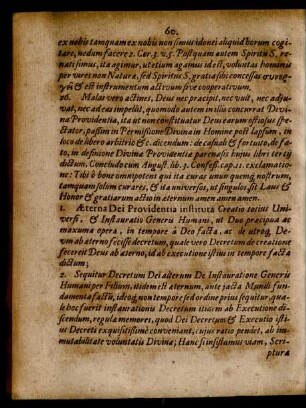 60.
ex nobis tamquam ex nobis non simus idonei aliquid horum cogi-
tare, nedum facere 2. Cor. 3. v. 5. Postquam autem Spiritu S. re-
nati simus, ita agimur, ut etiam agamus id est, voluntas hominis
per vires non Naturæ, sed Spiritus S. gratia sibi concessas
& est instrumentum activum sive cooperativum.
26. Malas vero actiones, Deus nec præcipit, nec vult, nec adju-
vat, nec ad eas impellit, quomodo autem in illis concurrat Divi-
na Providentia, ita ut non constituatur Deus earum otiosus spec-
tator, passim in Permissione Divina in Homine post lapsum, in
loco de libero arbitrio &c. dicendum: de casuali & fortuito, de fa-
to, in definitione Divinæ Providentiæ parensis hujus libri tertij
dictum. Concludo cum August. lib. 3. Confess. cap. 11. exclamatio-
ne: Tibi ô bone omnipotens qui ita curas unum quemq; nostrum,
tamquam solum curares, & ita universos, ut singulos, sit Laus &
Honor & gratiarum actio in æternum amen amen amen.
1. Æterna Dei Providentia instituta Creatio totius Uni-
versi, & Instauratio Generis Humani, ut Duo præcipua ac
maxuma opera, in tempore à Deo facta, ac de utroq; De-
um ab æterno fecisse decretum, quale vero Decretum de creatione
fecereit Deus ab æterno, id ab executione istius in tempore facta
dictum;
2. Sequitur Decretum Dei alterum De Instauratione Generis
Humani per Filium, itidem est æternum, ante jacta Mundi fun-
damenta factũ, ideoq; non tempore sed ordine prius sequitur, qua-
le hoc fuerit instaurationis Decretum itidem ab Executione di-
scendum, regula memores, quod Dei Decretum & Executio isti-
us Decreti exquisitissimè conveniant, cujus ratio pendet, ab im-
mutabilitate voluntatis Divinæ; Hanc si insistamus viam, Scri-
ptura